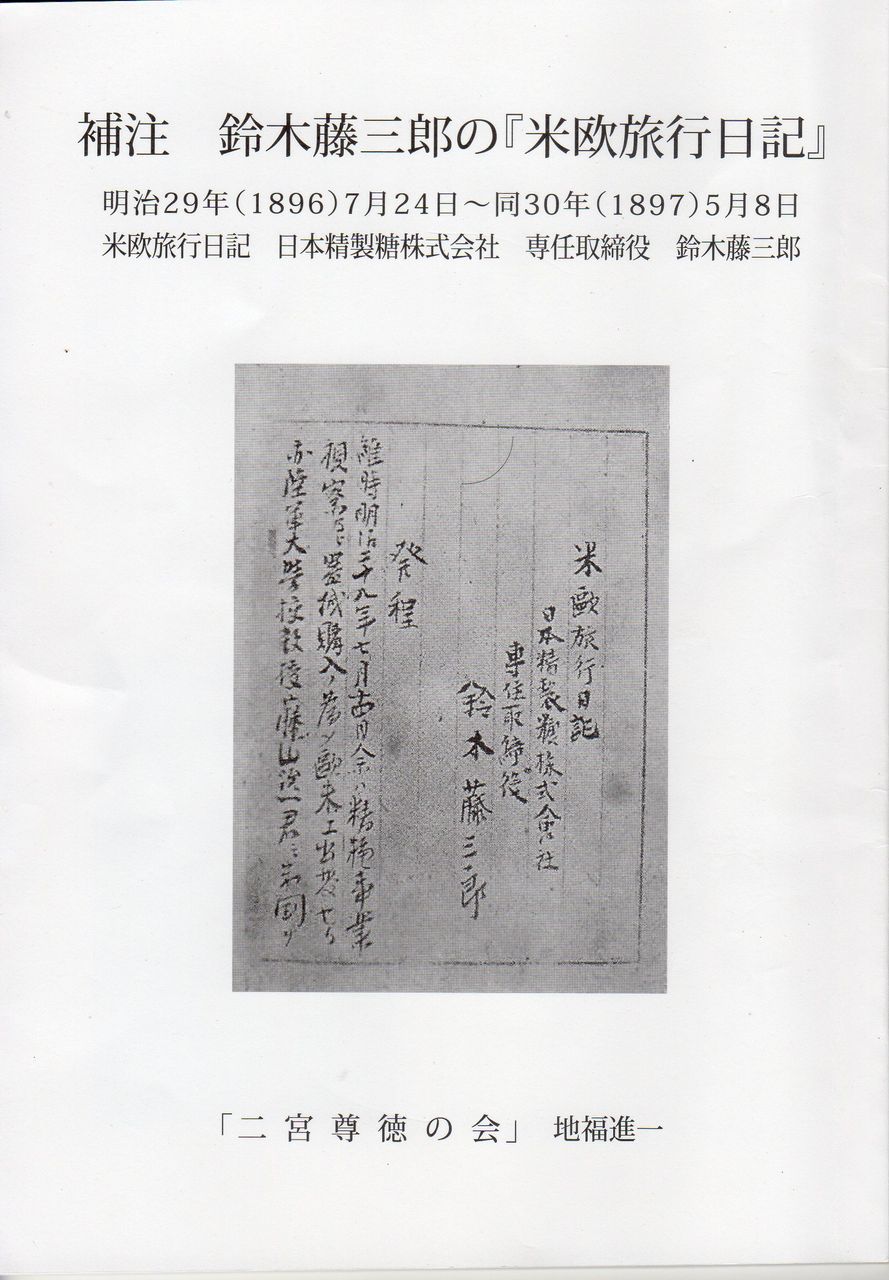 補注　鈴木藤三郎の『米欧旅行日記』
明治29年（1896）7月24日～同30年（1897）5月8日
米欧旅行日記　日本精製糖株式会社　専任取締役　鈴木藤三郎
米歐旅行日記
日本精製糖株式會社
専任取締役
鈴木藤三郎
発程
維時明治二十九年七月廿四日余ハ精糖事業
視察 器械購入ノ為メ歐米エ出発セリ
亦陸軍大學校教授 藤山治一君
「二宮尊徳の会」　地福進一